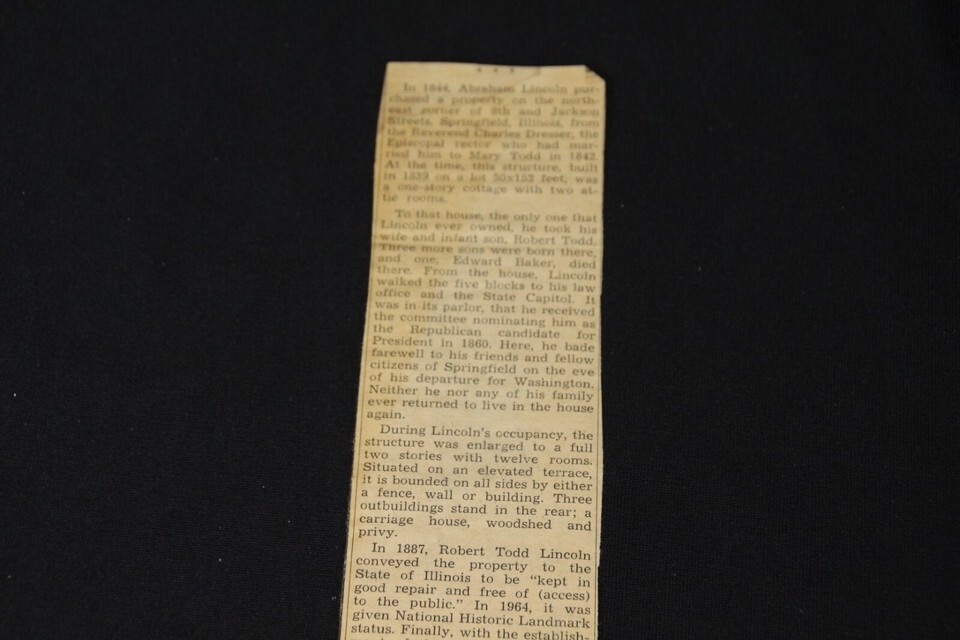 In 1844, Abraham Lincoln pur-
chased a property on the north-
east corner of 8th and Jackson
Streets, Springfield, Illinois, from
the Reverend Charles Dresser, the
Episcopal rector who had mar-
ried him to Mary Todd in 1842.
At the time, this structure, built
in 1839 on a lot 50x152 feet, was
a one-story cottage with two at-
tic rooms.
To that house, the only one that
Lincoln ever owned, he took his
wife and infant son, Robert Todd.
Three more sons were born there,
and one, Edward Baker, died
there. From the house, Lincoln
walked the five blocks to his law
office and the State Capitol. It
was in its parlor, that he received
the committee nominating him as
the Republican candidate for
President in 1860. Here, he bade
farewell to his friends and fellow
citizens of Springfield on the eve
of his departure for Washington.
Neither he nor any of his family
ever returned to live in the house
again.
During Lincoln's occupancy, the
structure was enlarged to a full
two stories with twelve rooms.
Situated on an elevated terrace,
it is bounded on all sides by either
a fence, wall or building. Three
outbuildings stand in the rear; a
carriage house, woodshed and
privy.
In 1887, Robert Todd Lincoln
conveyed the property to the
State of Illinois to be "kept in
good repair and free of (access)
to the public." In 1964, it was
given National Historic Landmark
status. Finally, with the establish-